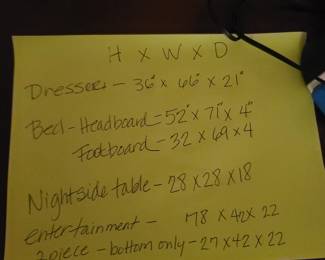 H x W x D
Dressers - 36" x 66" x 21"
Bed - Headboard = 52" x 71" x 4"
Footboard - 32 x 69 x 4
Nightside table - 28 x 28 x 18
entertainment - 78 x 42 x 22
2 piece - bottom only - 27 x 42 x 22